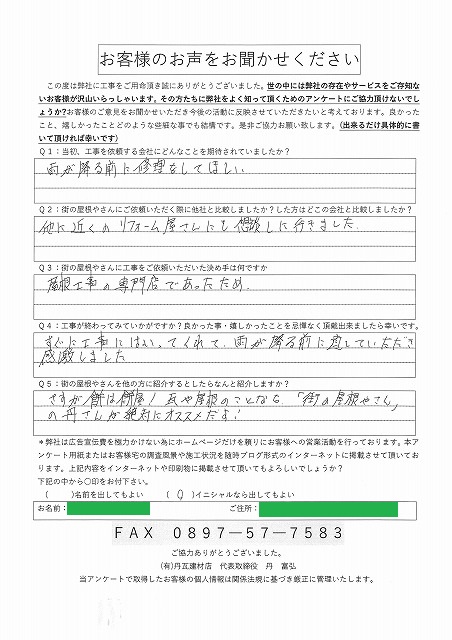 お客様のお声をお聞かせください
この度は弊社に工事をご用命頂き誠にありがとうございました。世の中には弊社の存在やサービスをご存知な
いお客様が沢山いらっしゃいます。その方たちに弊社をよく知って頂くためのアンケートにご協力頂けないでし
ょうか?お客様のご意見をお聞かせいただき今後の活動に反映させていただきたいと考えております。良かった
こと、嬉しかったことどのような些細な事でも結構です。是非ご協力お願い致します。（出来るだけ具体的に書
いて頂ければ幸いです）
Ｑ１：当初、工事を依頼する会社にどんなことを期待されていましたか？
雨が降る前に修理をしてほしい
Ｑ２：街の屋根やさんにご依頼いただく際に他社と比較しましたか？した方はどこの会社と比較しましたか？
他に近くのリフォーム屋さんにも相談しに行きました.
Ｑ３：街の屋根やさんに工事をご依頼いただいた決め手は何ですか
屋根工事の専門店であったため.
Ｑ４：工事が終わってみていかがですか？良かった事・嬉しかったことを忌憚なく頂戴出来ましたら幸いです。
すぐに工事にはいってくれて、雨が降る前に直していただき
感謝しました
Ｑ５：街の屋根やさんを他の方に紹介するとしたらなんと紹介しますか？
さすが餅は餅屋！瓦や屋根のことなら、「街の屋根やさん」
の丹さんが絶対にオススメだよ！
＊弊社は広告宣伝費を極力かけない為にホームページだけを頼りにお客様への営業活動を行っております。本ア
ンケート用紙またはお客様宅の調査風景や施工状況を随時ブログ形式のインターネットに掲載させて頂いてお
ります。上記内容をインターネットや印刷物に掲載させて頂いてもよろしいでしょうか？
下記の中から〇印をお付下さい。
（　　）名前を出してもよい　（ 〇 ）イニシャルなら出してもよい
お名前：　ご住所：
ＦＡＸ　０８９７－５７－７５８３
ご協力ありがとうございました。
(有)丹瓦建材店　代表取締役　丹　富弘
当アンケートで取得したお客様の個人情報は関係法規に基づき厳正に管理いたします。